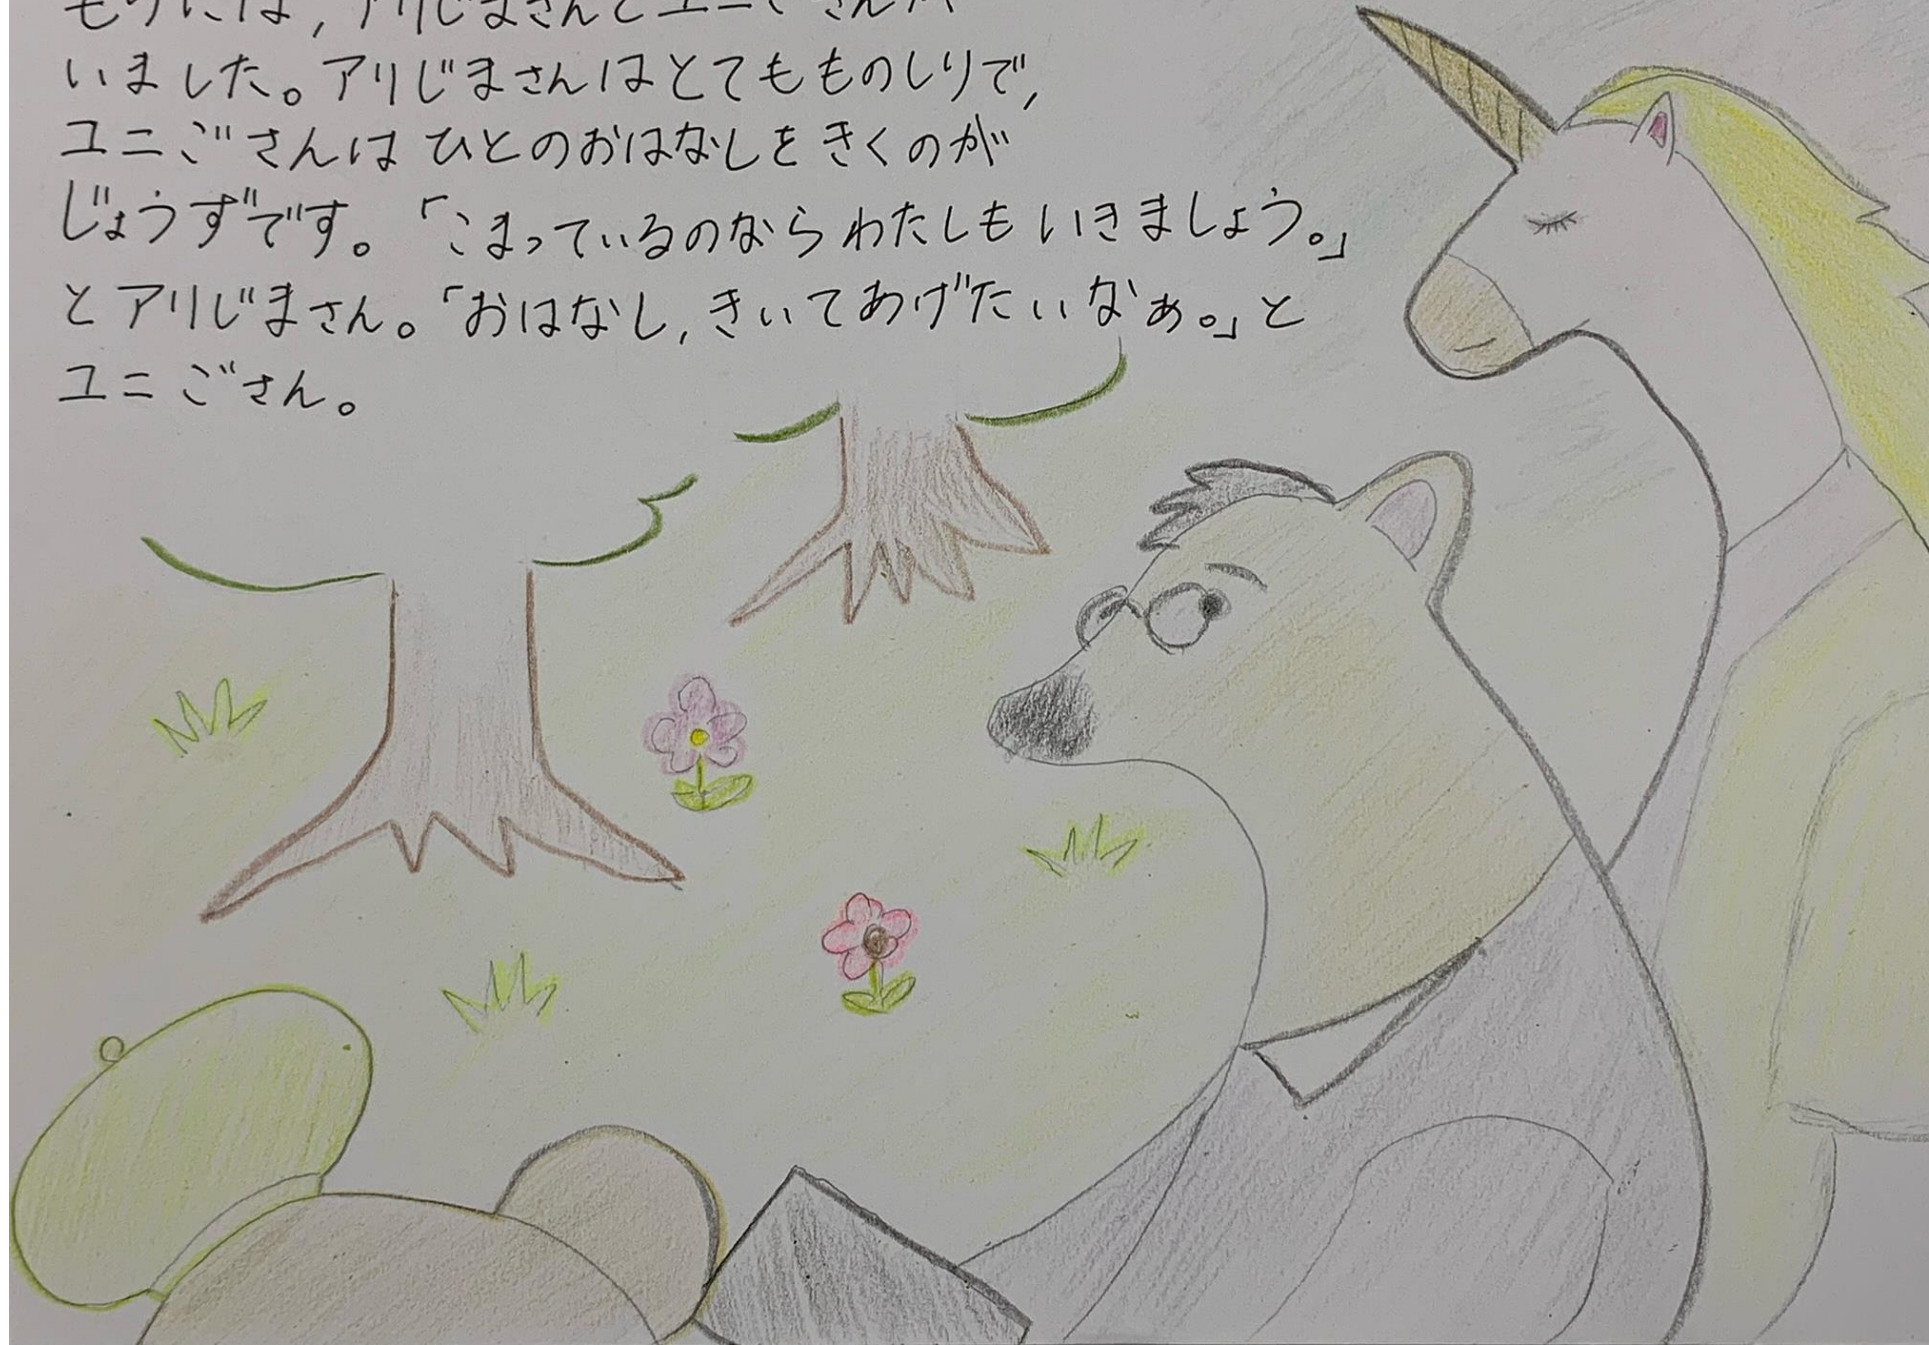 もりには,アリじまさんとユニごさんが
いました。アリじまさんはとてもものしりで,
ユニごさんはひとのおはなしをきくのが
じょうずです。「こまっているのならわたしもいきましょう。」
とアリじまさん。「おはなし,きいてあげたいなぁ。」と
ユニごさん。